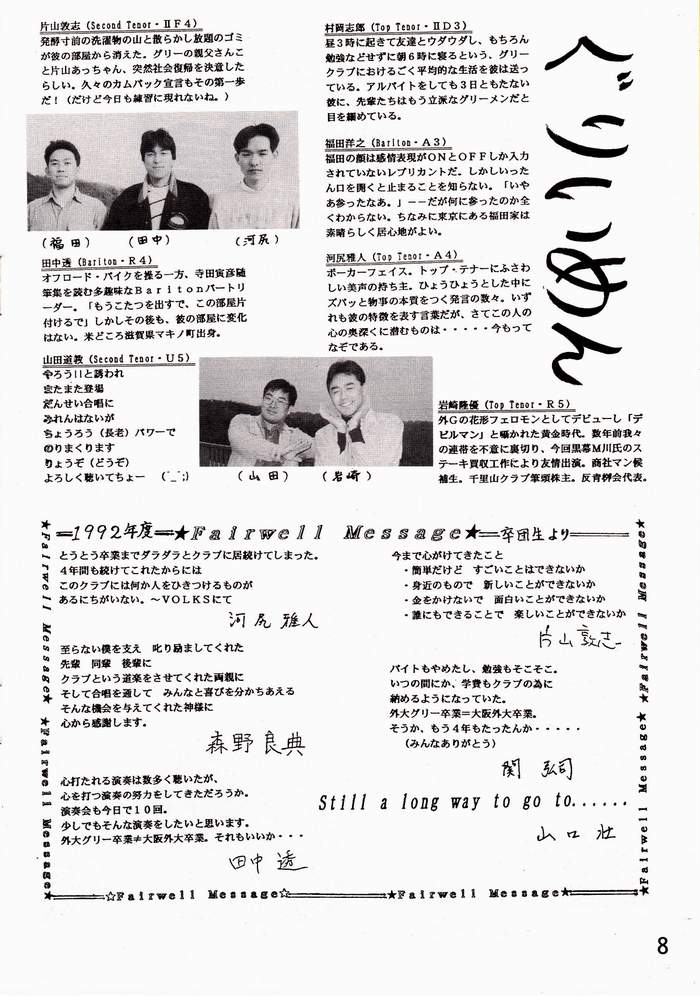 ぐりいめん
片山敦志(Second Tenor・ⅡF4)
発酵寸前の洗濯物の山と散らかし放題のゴミ
が彼の部屋から消えた。グリーの親父さんこ
と片山あっちゃん、突然社会復帰を決意した
らしい。久々のカムバック宣言もその第一歩
だ！(だけど今日も練習に現れないね。)
(福田) (田中) (河尻)
田中透(Bariton・R4)
オフロード・バイクを操る一方、寺田寅彦随
筆集を読む多趣味なBaritonパートリ
ーダー。「もうこたつを出すで、この部屋片
付けるで」しかしその後も、彼の部屋に変化
はない。米どころ滋賀県マキノ町出身。
山田道教(Second Tenor・U5)
やろう!!と誘われ
またまた登場
だんせい合唱に
みれんはないが
ちょうろう(長老)パワーで
のりまくります
りょうぞ(どうぞ)
よろしく聴いてちょー (^_^;)
村岡志郎(Top Tenor・ⅡD3)
昼3時に起きて友達とウダウダし、もちろん
勉強などせずに朝6時に寝るという、グリー
クラブにおけるごく平均的な生活を彼は送っ
ている。アルバイトをしても3日ともたない
彼に、先輩たちはもう立派なグリーメンだと
目を細めている。
福田洋之(Bariton・A3)
福田の顔は感情表現がONとOFFしか入力
されていないレプリカントだ。しかしいった
ん口を開くと止まることを知らない。「いや
あ参ったなあ。」——だが何に参ったのか全
くわからない。ちなみに東京にある福田家は
素晴らしく居心地がよい。
河尻雅人(Top Tenor・A4)
ポーカーフェイス。トップ・テナーにふさわ
しい美声の持ち主。ひょうひょうとした中に
ズバッと物事の本質をつく発言の数々。いず
れも彼の特徴を表す言葉だが、さてこの人の
心の奥深くに潜むものは・・・・・今もって
なぞである。
(山田) (岩崎)
岩崎隆優(Top Tenor・R5)
外Gの花形フェロモンとしてデビューし「デ
ビルマン」と囁かれた黄金時代。数年前我々
の連帯を不意に裏切り、今回黒幕M川氏のス
テーキ買収工作により友情出演。商社マン候
補生。千里山クラブ筆頭株主。反青柳会代表。
＝1992年度＝★Fairwell Message★＝卒団生より
とうとう卒業までダラダラとクラブに居続けてしまった。
4年間も続けてこれたからには
このクラブには何か人をひきつけるものが
あるにちがいない。～VOLKSにて
河尻雅人
至らない僕を支え 叱り励ましてくれた
先輩 同輩 後輩に
クラブという道楽をさせてくれた両親に
そして合唱を通して みんなと喜びを分かちあえる
そんな機会を与えてくれた神様に
心から感謝します。
森野良典
心打たれる演奏は数多く聴いたが、
心を打つ演奏の努力をしてきただろうか。
演奏会も今日で10回。
少しでもそんな演奏をしたいと思います。
外大グリー卒業≠大阪外大卒業。それもいいか・・・
田中透
今まで心がけてきたこと
・簡単だけど すごいことはできないか
・身近のもので 新しいことができないか
・金をかけないで 面白いことができないか
・誰にもできることで 楽しいことができないか
片山敦志
バイトもやめたし、勉強もそこそこ。
いつの間にか、学費もクラブの為に
納めるようになっていた。
外大グリー卒業＝大阪外大卒業。
そうか、もう4年もたったんか・・・・・
(みんなありがとう)
関 弘司
Still a long way to go to......
山口 壮
★Fairwell Message★
★Fairwell Message★
★Fairwell Message★
★Fairwell Message★
☆Fairwell Message☆
★Fairwell Message★
8